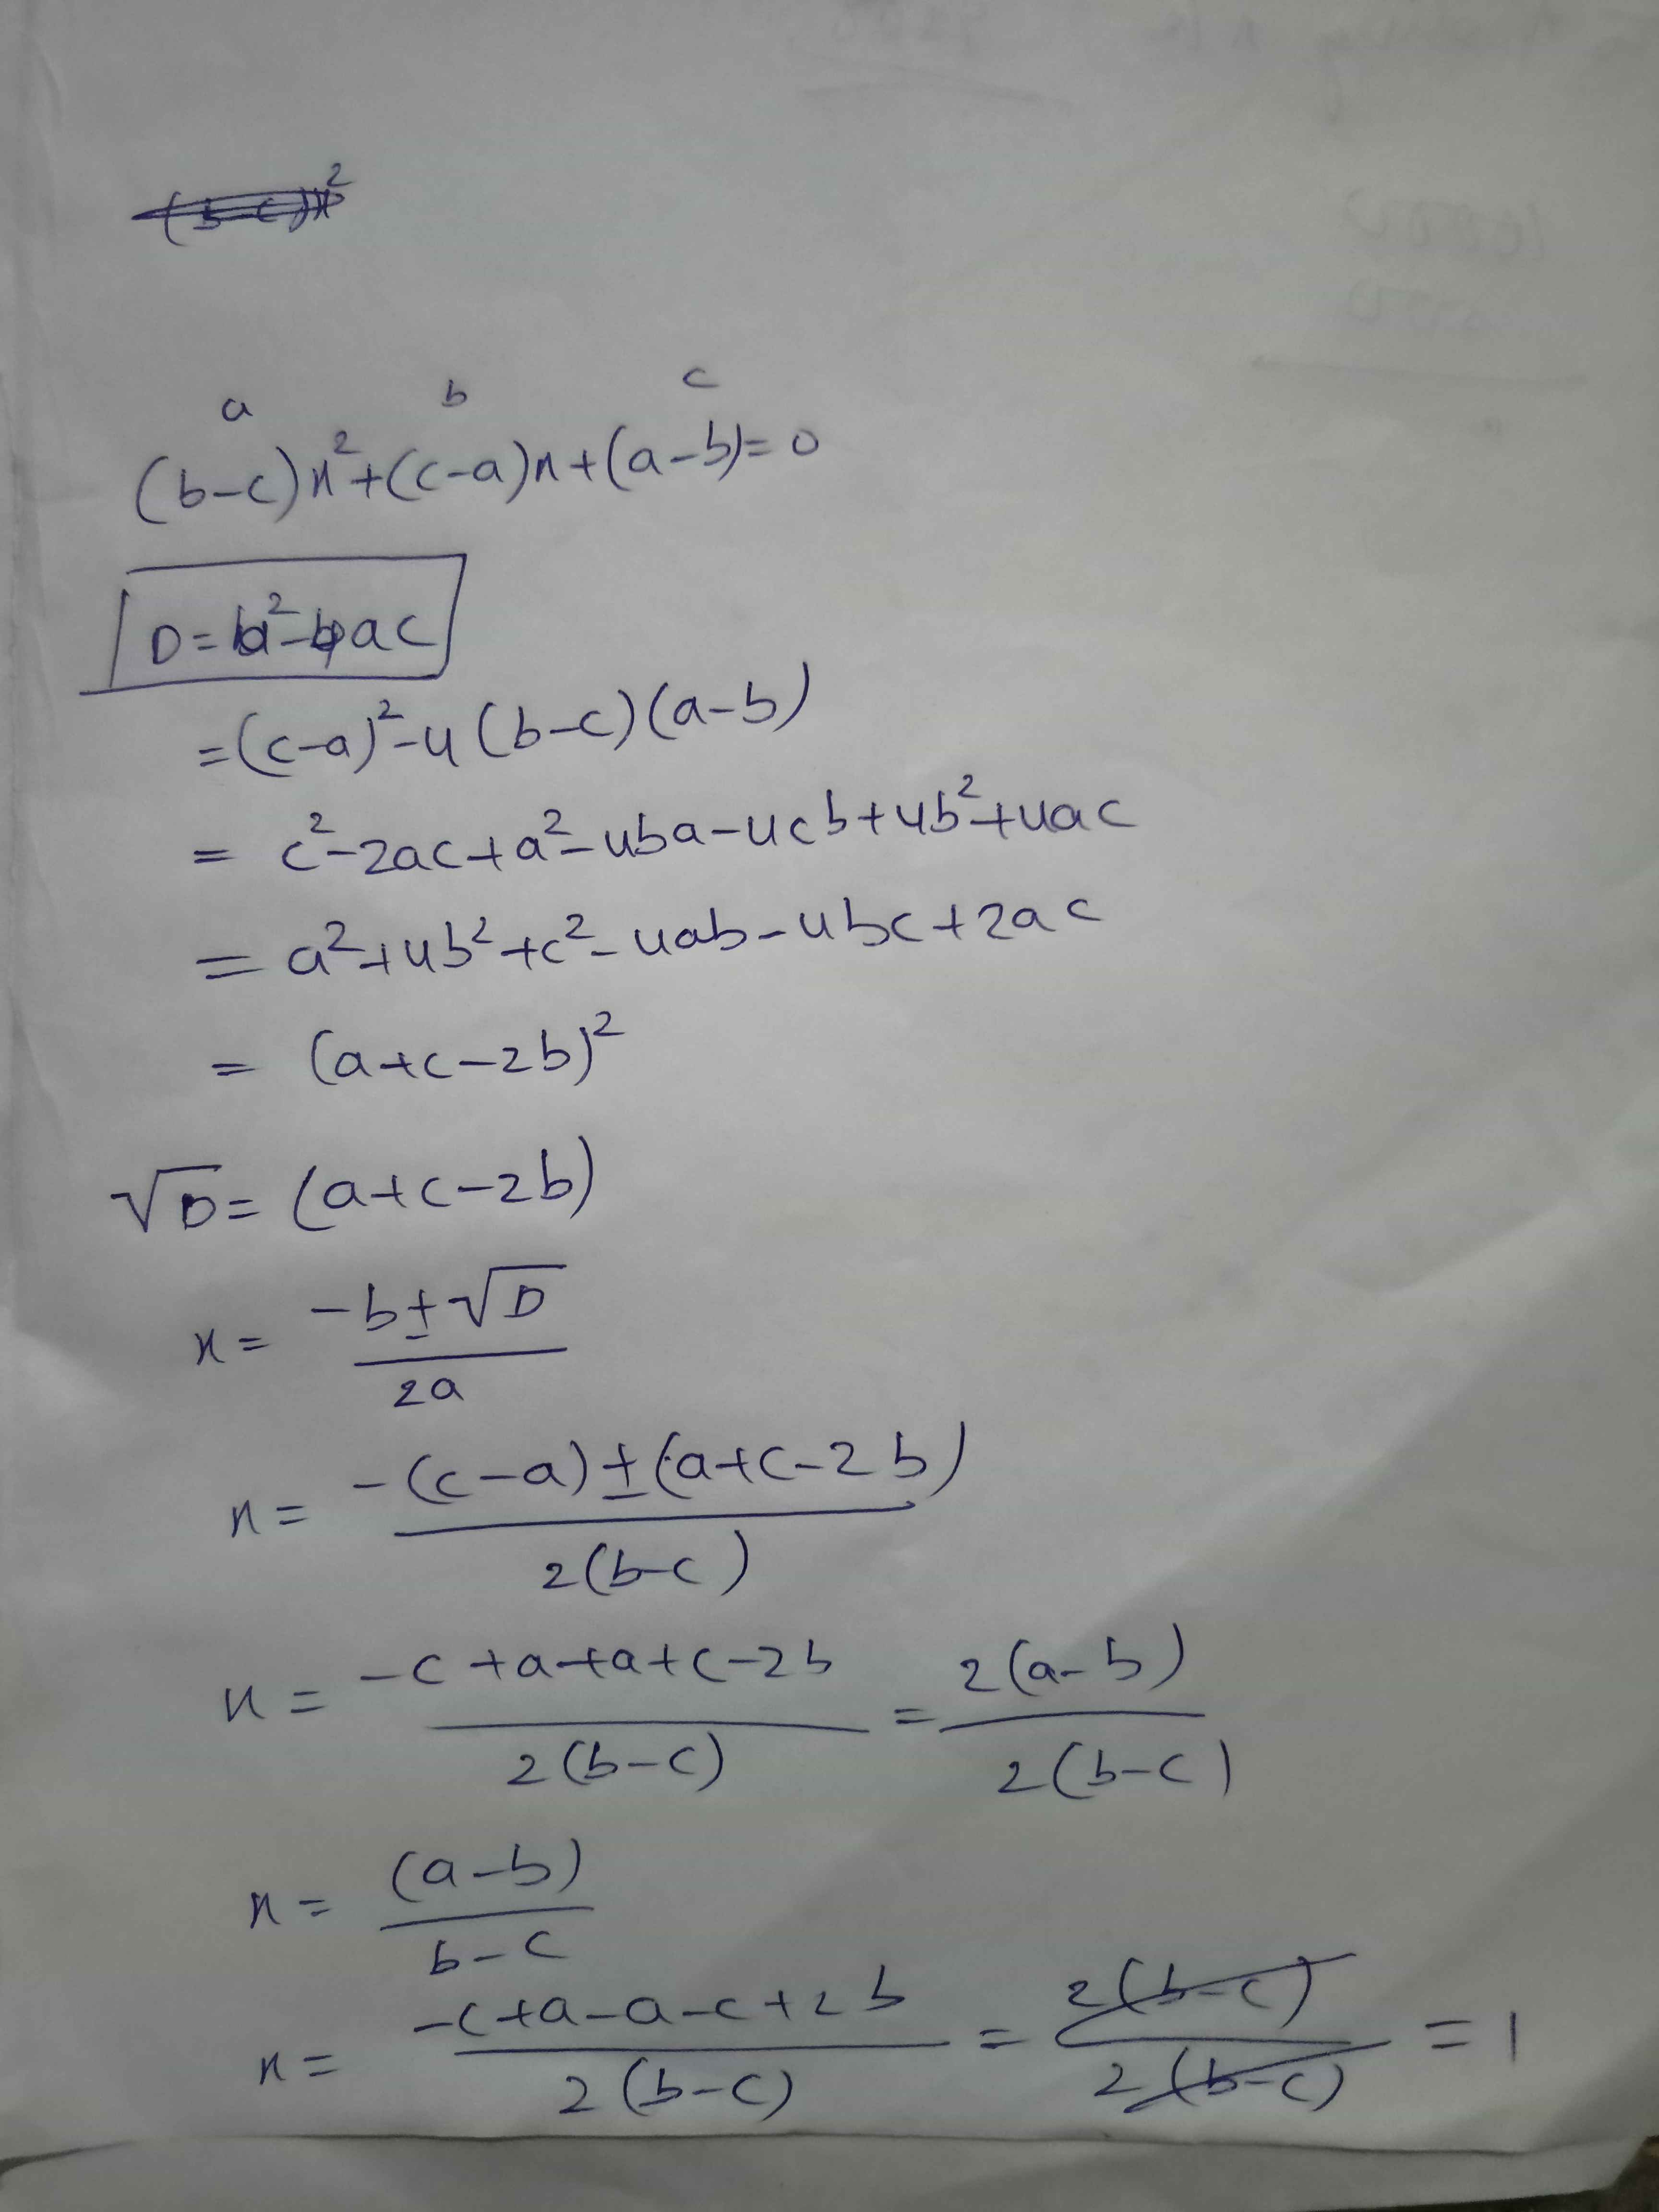 (b-c)x²
a b c
(b-c)x²+(c-a)x+(a-b)=0
D=b²-4ac
=(c-a)²-4(b-c)(a-b)
= c²-2ac+a²-4ba-4cb+4b²+4ac
= a²+4b²+c²-4ab-4bc+2ac
= (a+c-2b)²
√D= (a+c-2b)
x= -b±√D / 2a
x= -(c-a)±(a+c-2b) / 2(b-c)
x= -c+a+a+c-2b / 2(b-c) = 2(a-b) / 2(b-c)
x= (a-b) / b-c
x= -c+a-a-c+2b / 2(b-c) = 2(b-c) / 2(b-c) = 1